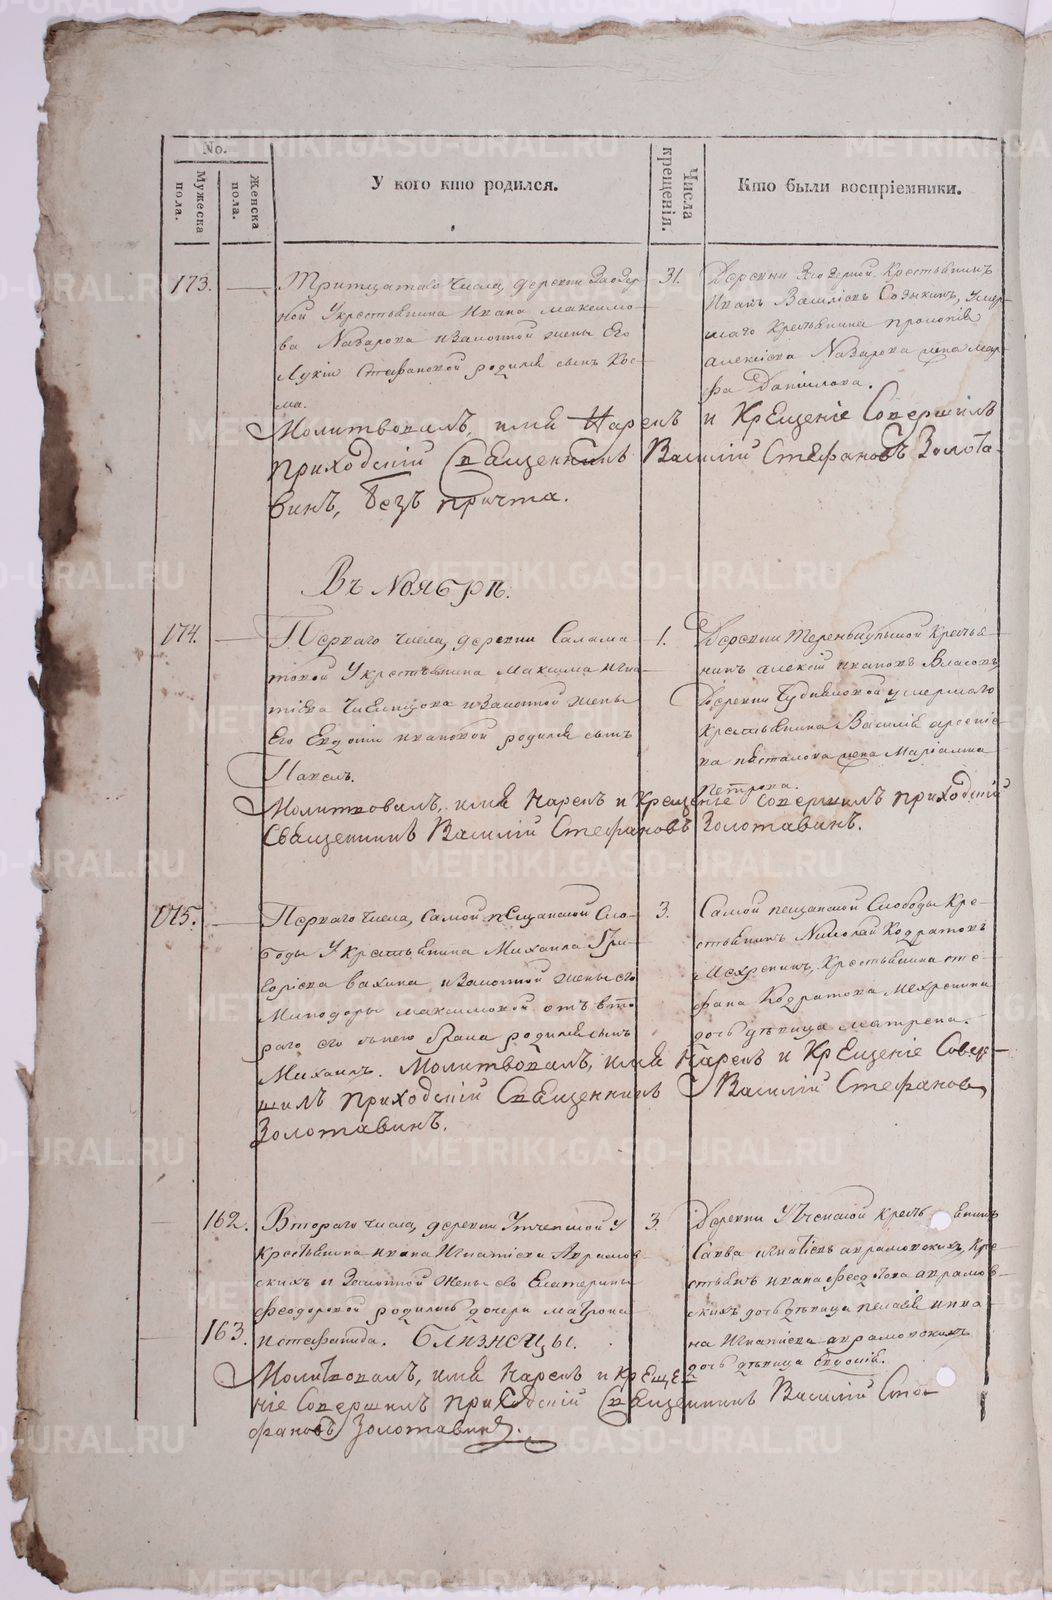 No.
Мужеска пола.
Женска пола.
У кого кто родился.
Числа крещенія.
Кто были воспріемники.
173.
Тритцатаго числа, деревни Заозер-
ной У крестьянина Ивана Максимо-
ва Назарова и законной жены Его
Лукіи Стефановой родился сынъ Кос-
ма.
31.
Деревни Заозерной крестьянинъ
Иванъ Василіевъ Содыкинъ, Умер-
шаго крестьянина Прокопія
Алексіева Назарова жена Мар-
фа Данилова.
Молитвовалъ, имя Нарекъ и Крещеніе Совершилъ
приходскій Священникъ Василій Стефановъ Золота-
винъ, безъ причта.
Въ Ноябрѣ.
174.
Перваго числа, деревни Салама-
товой У крестьянина Максима Игна-
тіева и законной жены
Его Евдокіи Ивановой родился сынъ
Павелъ.
1.
Деревни крестья-
нинъ Алексій Ивановъ Власовъ
Деревни умершаго
крестьянина Василія
жена Маріамна
Петрова.
Молитвовалъ, имя Нарекъ и Крещеніе Совершилъ приходскій
Священникъ Василій Стефановъ Золотавинъ.
175.
Перваго числа, Самой Пещанской Сло-
боды У крестьянина Михаила Гри-
горіева Вахина, и законной жены его
Минодоры Максимовой отъ вто-
раго его съ нею брака родился сынъ
Михаилъ.
3.
Самой Пещанской Слободы Кре-
стьянинъ Николай Кодратовъ
Мехренинъ, Крестьянина Сте-
фана Кодратова Мехренина
дочь дѣвица Матрена.
Молитвовалъ, имя Нарекъ и Крещеніе Совер-
шилъ приходскій Священникъ Василій Стефановъ
Золотавинъ.
162.
163.
Втораго числа, деревни Утчанской У
крестьянина Ивана Игнатіева Аврамов-
скихъ и законной жены его Екатерины
Феодоровой родились дочери Матрона
и Стефанида. Близнецы.
3.
Деревни Утчанской крестьянинъ
Савва Игнатіевъ Аврамовскихъ, Кре-
стьянъ Ивана Феодотова Аврамов-
скихъ дочь дѣвица Пелагія Ива-
на Игнатіева Аврамовскихъ
дочь дѣвица Евдокія.
Молитвовалъ, имя Нарекъ и Креще-
ніе Совершилъ приходскій Священникъ Василій Сте-
фановъ Золотавинъ.
METRIKI.GASO-URAL.RU